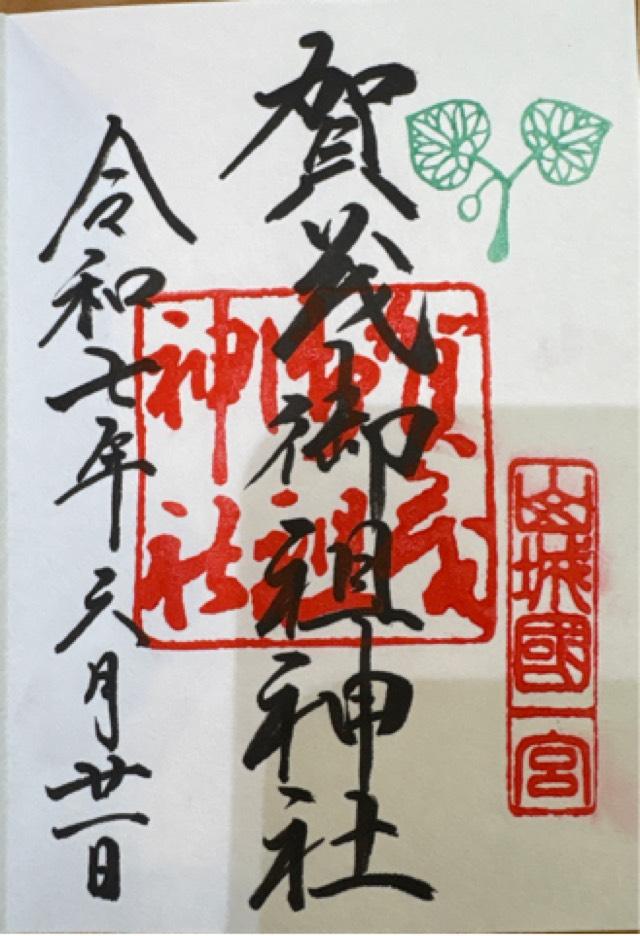 山城國一宮
賀茂御祖神社
賀茂
御祖
神社
令和七年六月廿一日